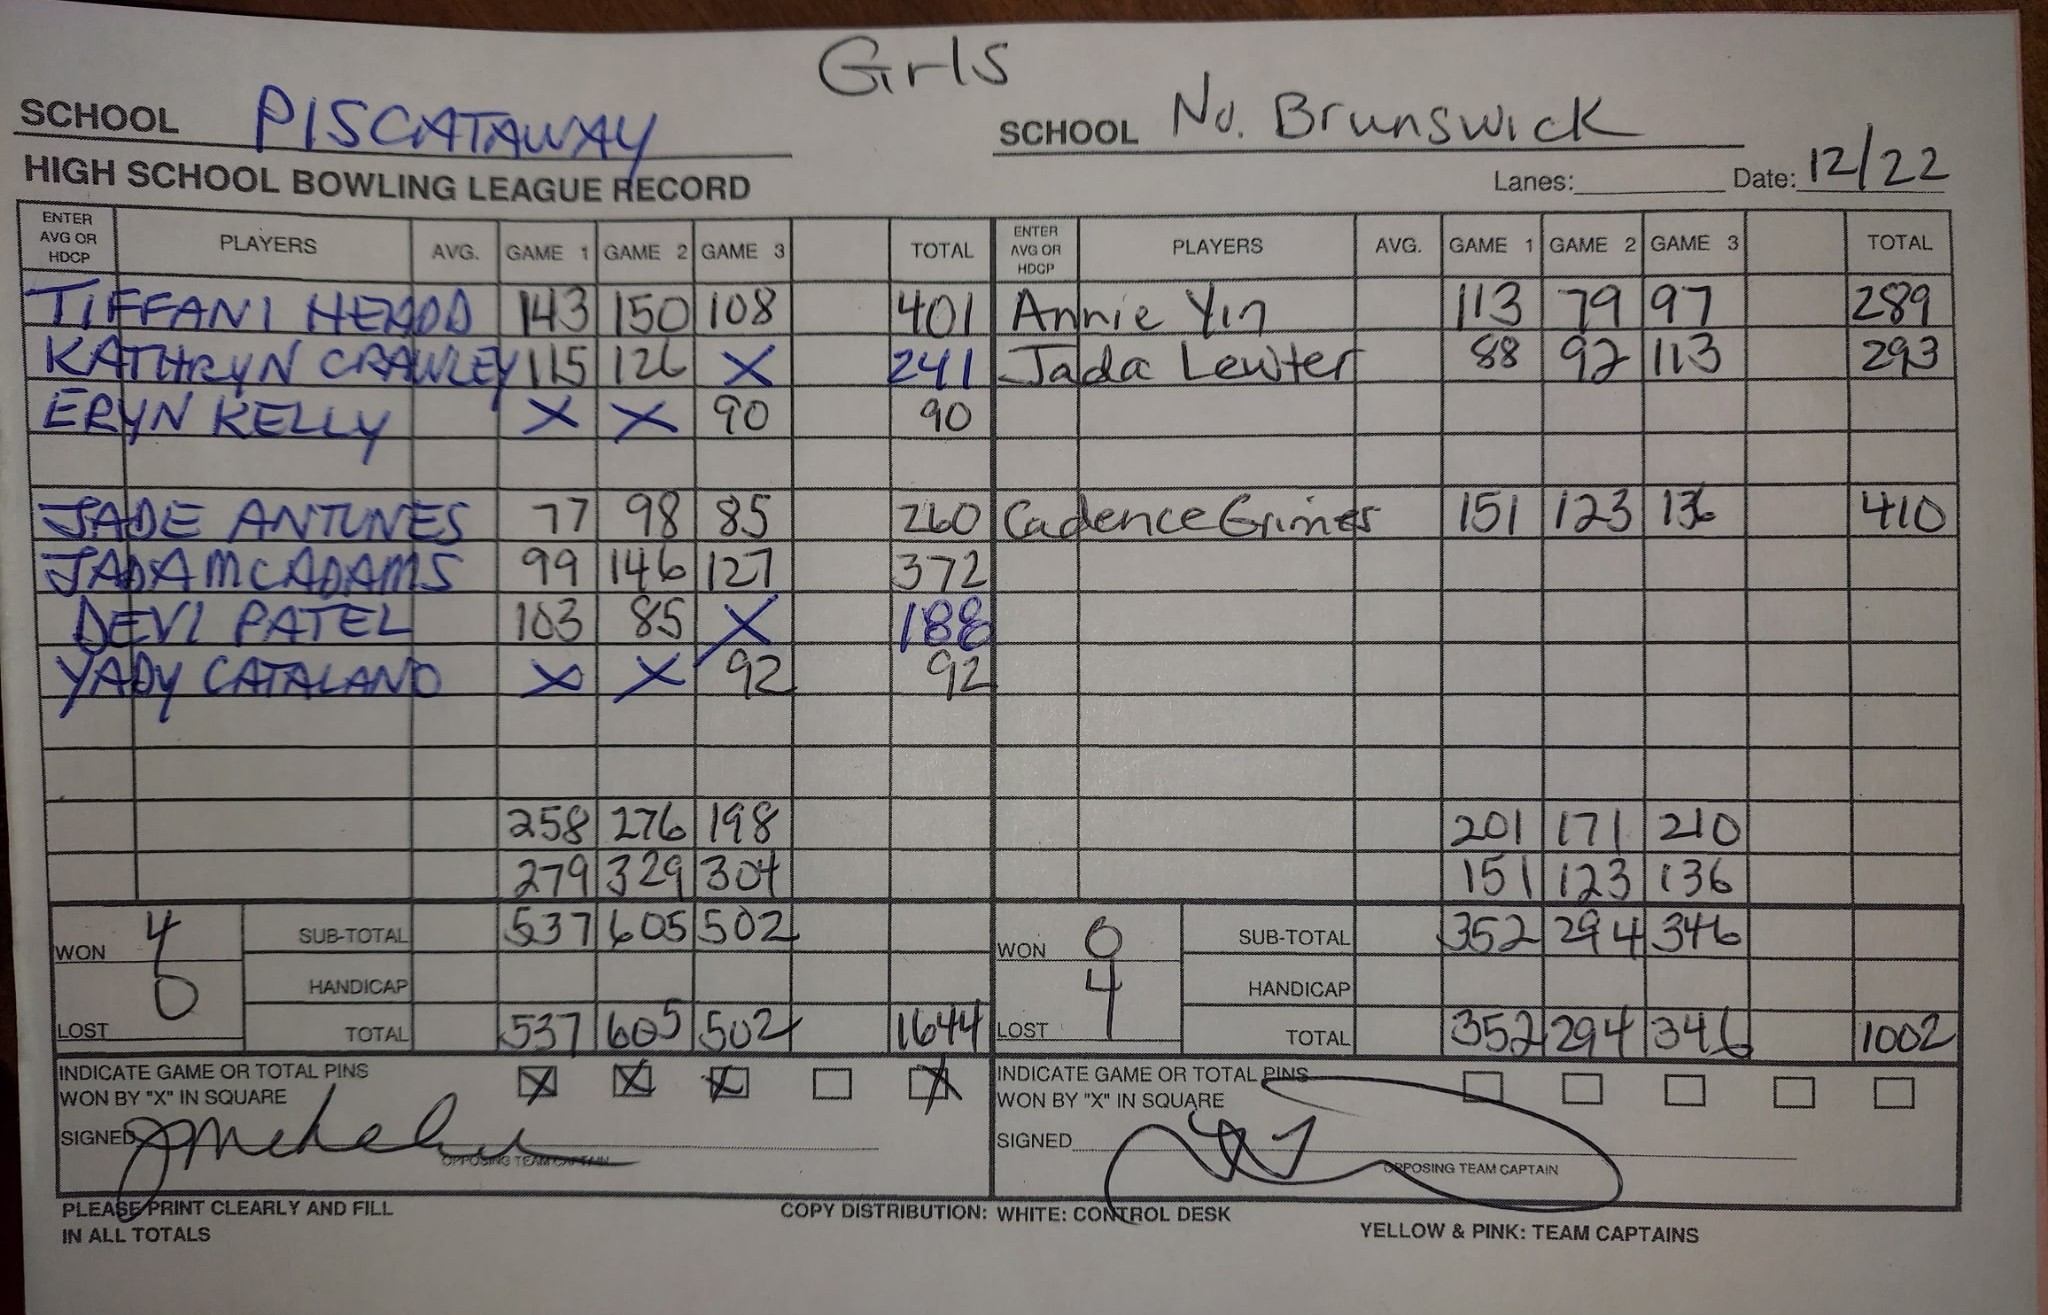 Girls
SCHOOL PISCATAWAY SCHOOL No. Brunswick
HIGH SCHOOL BOWLING LEAGUE RECORD Lanes: Date: 12/22
ENTER AVG OR HDCP PLAYERS AVG. GAME 1 GAME 2 GAME 3 TOTAL ENTER AVG OR HDCP PLAYERS AVG. GAME 1 GAME 2 GAME 3 TOTAL
TIFFANI 143 150 108 401 Annie Yin 113 79 97 289
KATHRYN CRAWLEY 115 126 X 241 Jada Lewter 88 92 113 293
ERYN KELLY X X 90 90
JADE ANTUNES 77 98 85 260 Cadence Grimes 151 123 136 410
JADA MCADAMS 99 146 127 372
DEVI PATEL 103 85 X 188
YADY CATALANO X X 92 92
258 276 198 201 171 210
279 329 304 151 123 136
WON 4 SUB-TOTAL 537 605 502 WON 0 SUB-TOTAL 352 294 346
HANDICAP HANDICAP
LOST 0 TOTAL 537 605 502 1644 LOST 4 TOTAL 352 294 346 1002
INDICATE GAME OR TOTAL PINS X X X X INDICATE GAME OR TOTAL PINS
WON BY "X" IN SQUARE WON BY "X" IN SQUARE
SIGNED SIGNED
OPPOSING TEAM CAPTAIN OPPOSING TEAM CAPTAIN
PLEASE PRINT CLEARLY AND FILL COPY DISTRIBUTION: WHITE: CONTROL DESK
IN ALL TOTALS YELLOW & PINK: TEAM CAPTAINS